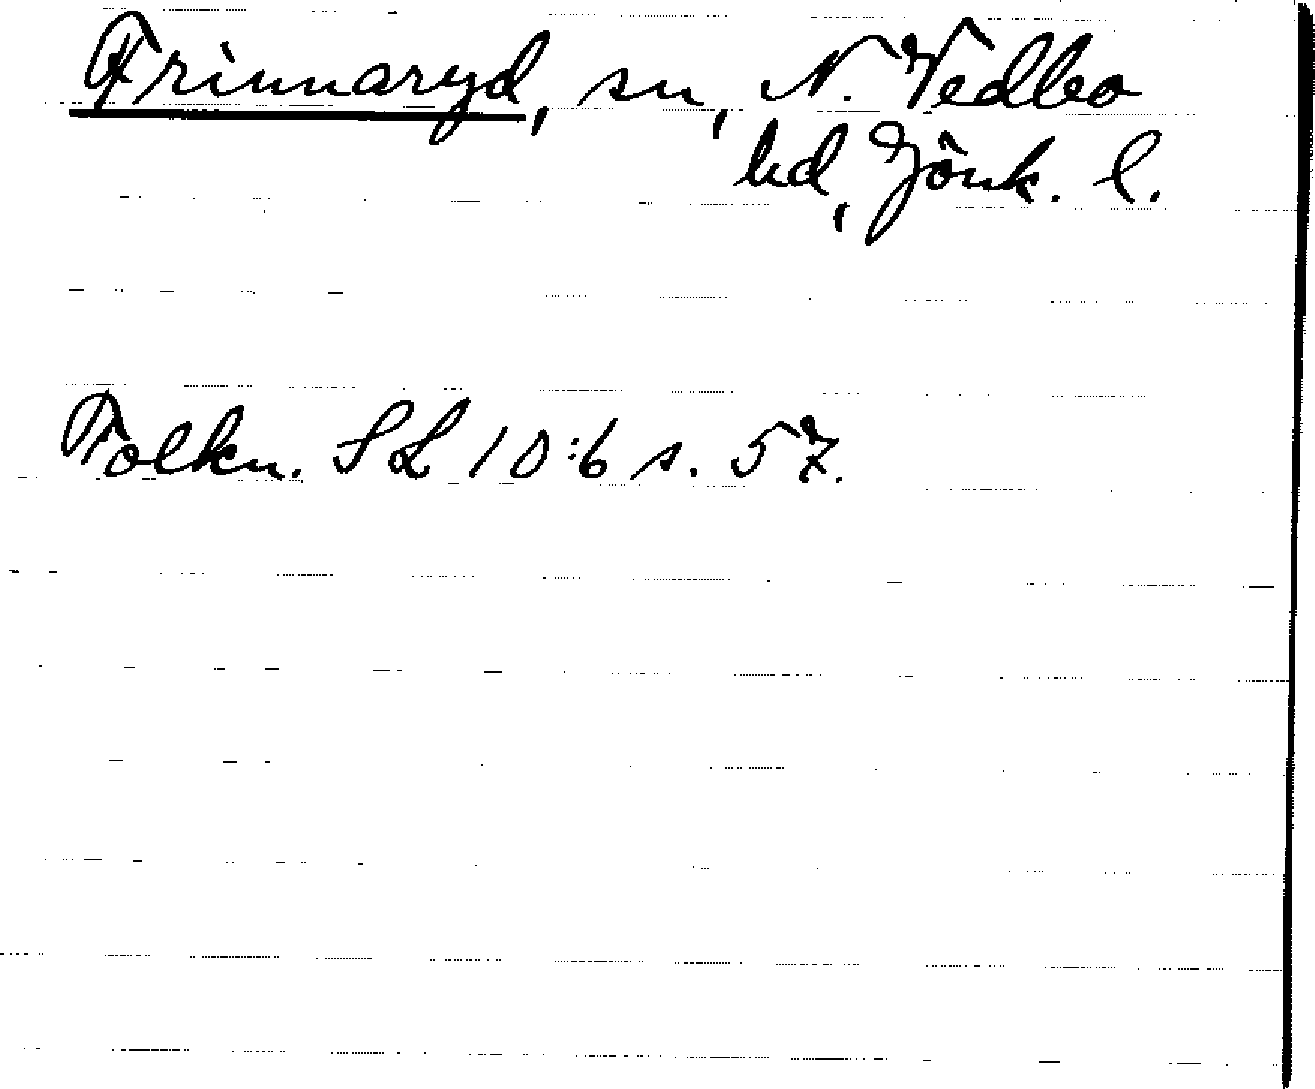 Frinnaryd, sn, N. Vedbo
hd, Jönk. l.
Folkn. SL 10:6 s. 57.